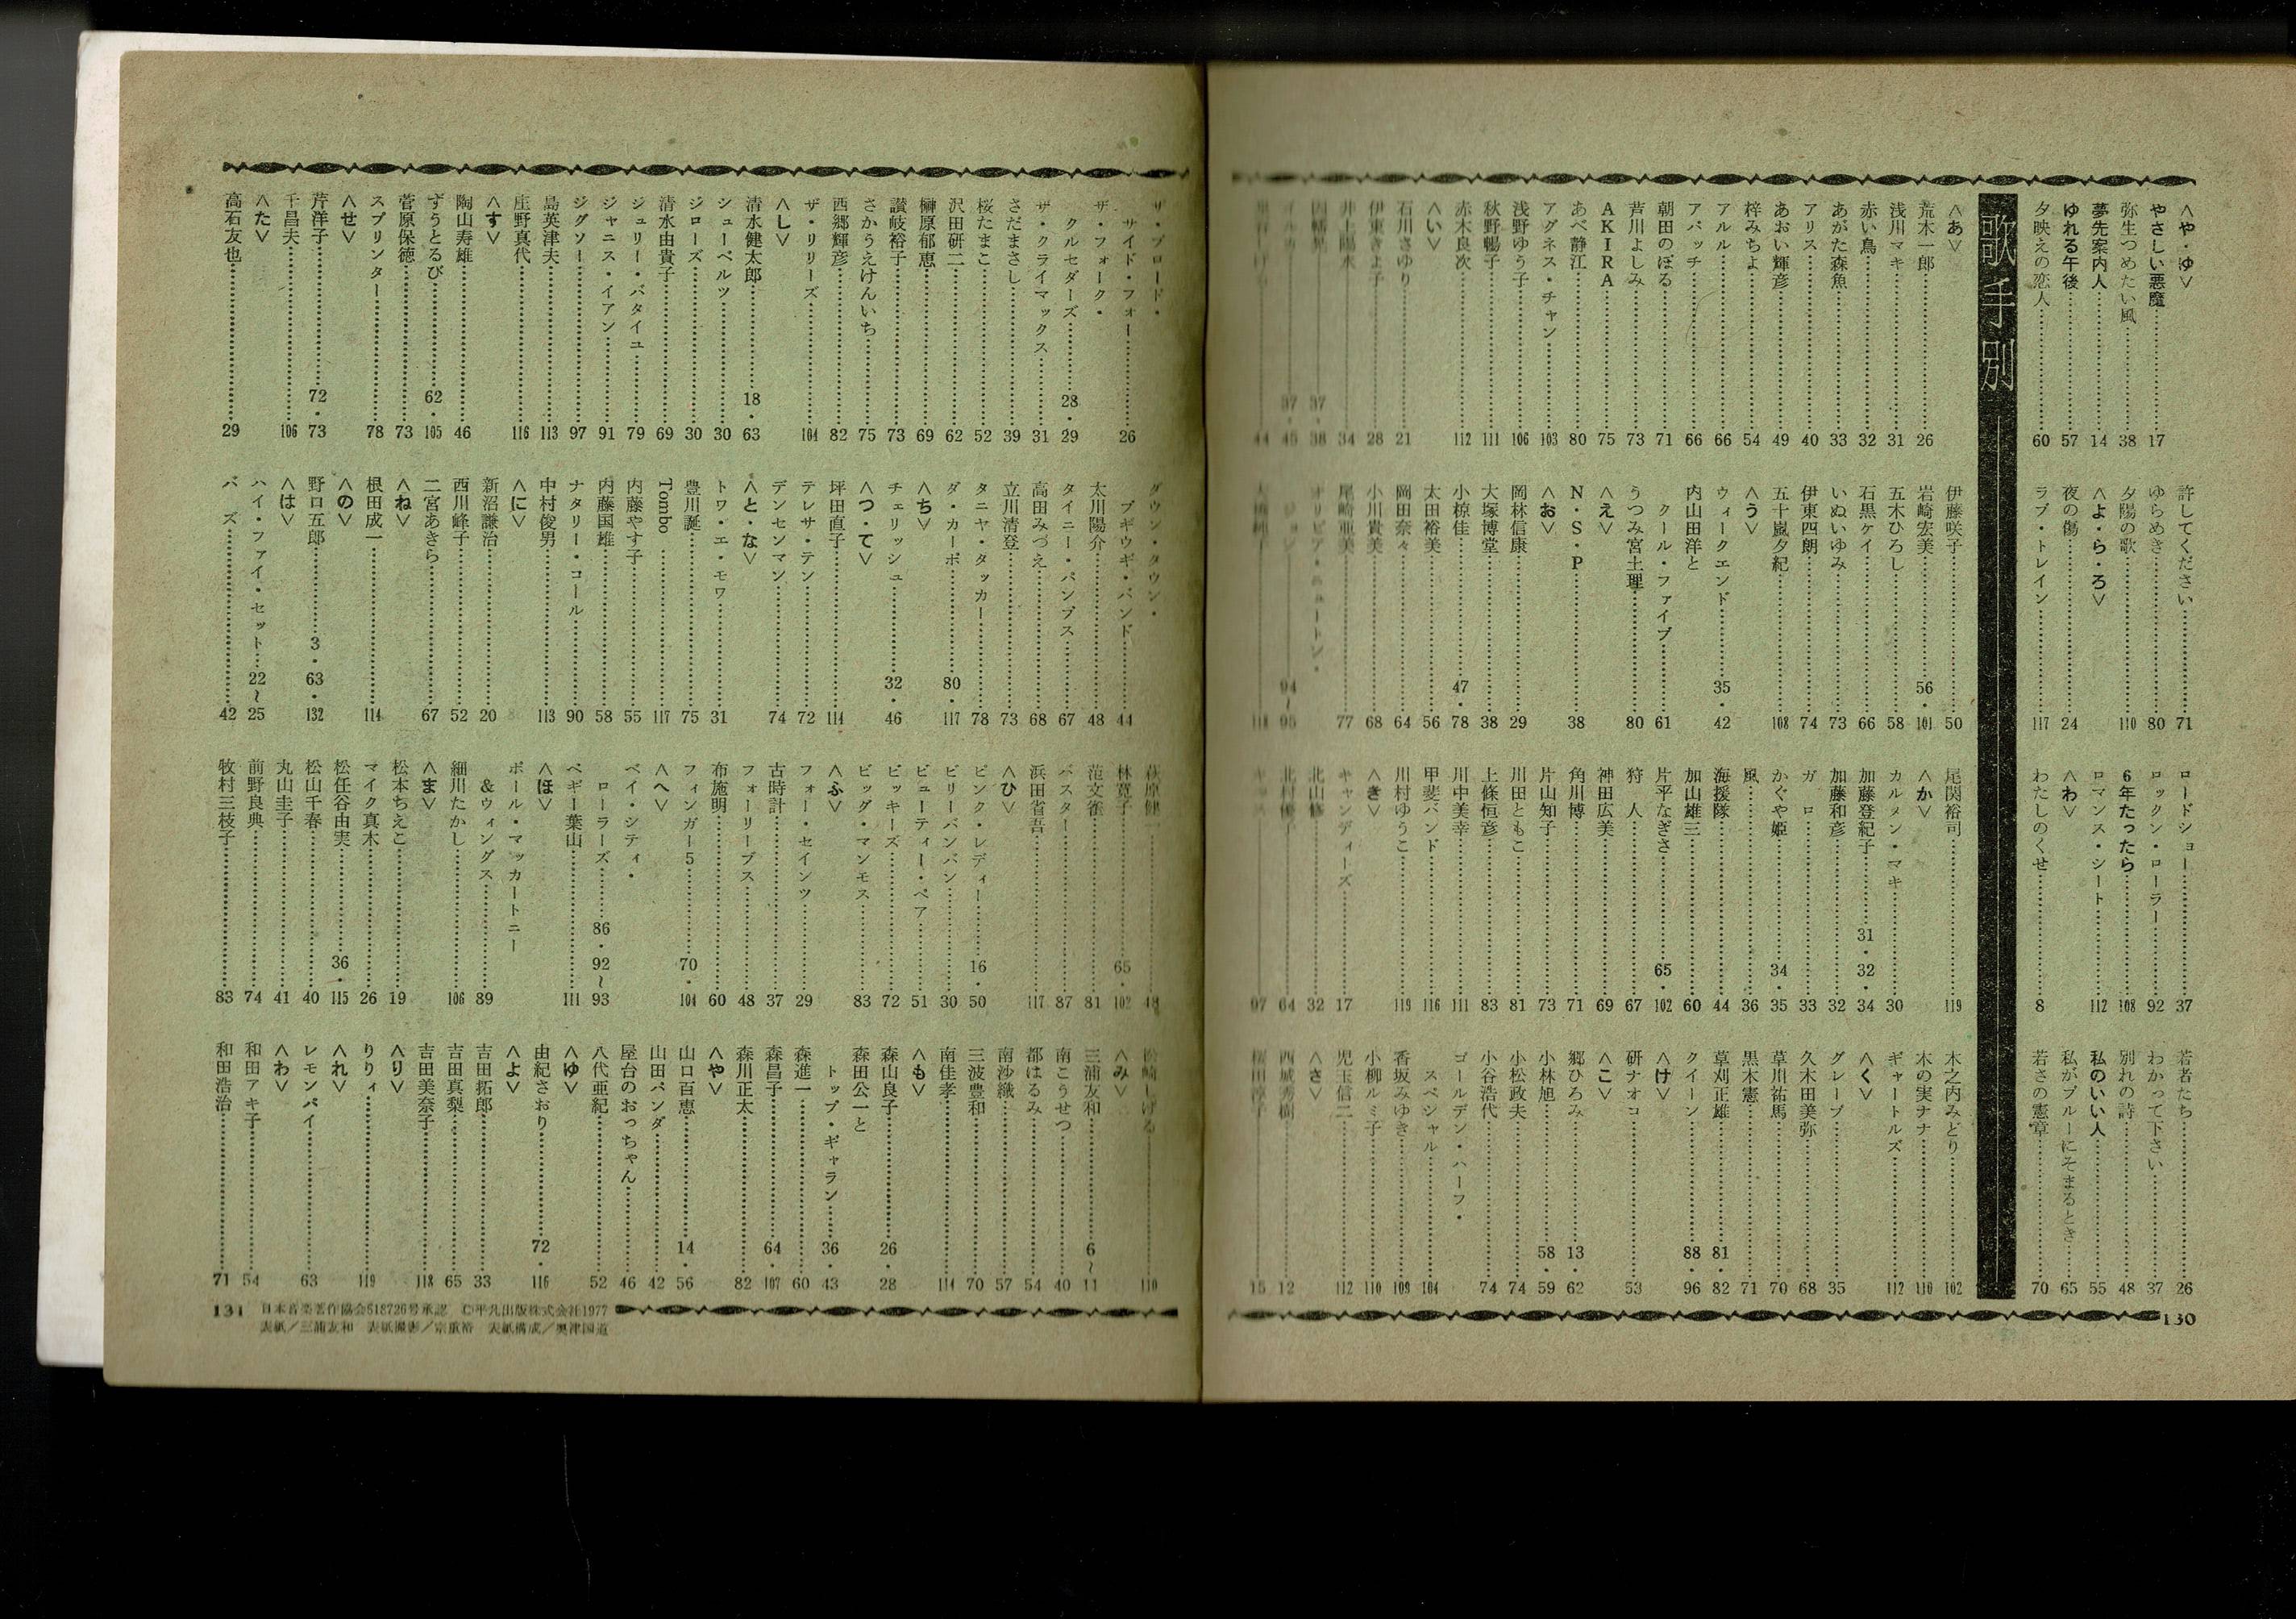 〈や・ゆ〉
やさしい悪魔……17
弥生つめたい風……38
夢先案内人……14
ゆれる午後……57
夕映えの恋人……60
許してください……71
ゆらめき……80
夕陽の歌……110
〈よ・ら・ろ〉
夜の傷……24
ラブ・トレイン……117
ロードショー……37
ロックン・ローラー……92
6年たったら……108
ロマンス・シート……112
〈わ〉
わたしのくせ……8
若者たち……26
わかって下さい……37
別れの詩……48
私のいい人……55
私がブルーにそまるとき……65
若さの憲章……70
歌手別
〈あ〉
荒木一郎……26
浅川マキ……31
赤い鳥……32
あがた森魚……33
アリス……40
あおい輝彦……49
梓みちよ……54
アルル……66
アパッチ……66
朝田のぼる……71
芦川よしみ……73
AKIRA……75
あべ静江……80
アグネス・チャン……103
浅野ゆう子……106
秋野暢子……111
赤木良次……112
〈い〉
石川さゆり……21
伊東きよ子……28
井上陽水……34
因幡晃……37・38
伊藤咲子……50
岩崎宏美……56・101
五木ひろし……58
石黒ケイ……66
いぬいゆみ……73
伊東四朗……74
五十嵐夕紀……108
〈う〉
ウィークエンド……35・42
内山田洋と
クール・ファイブ……61
うつみ宮土理……80
〈え〉
N・S・P……38
〈お〉
岡林信康……29
大塚博堂……38
小椋佳……47・78
太田裕美……56
岡田奈々……64
小川貴美……68
尾崎亜美……77
オリビア・ニュートン・
ジョン……94〜95
尾関裕司……119
〈か〉
カルメン・マキ……30
加藤登紀子……31・32・34
加藤和彦……32
ガロ……33
かぐや姫……34・35
風……36
海援隊……44
加山雄三……60
片平なぎさ……65・102
狩人……67
神田広美……69
角川博……71
片山知子……73
川田ともこ……81
上條恒彦……83
川中美幸……111
甲斐バンド……116
川村ゆうこ……119
〈き〉
キャンディーズ……17
北山修……32
北村優子……64
木之内みどり……102
木の実ナナ……110
ギャートルズ……112
〈く〉
グレープ……35
久木田美弥……68
草川祐馬……70
黒木憲……71
草刈正雄……81・82
クイーン……88・96
〈け〉
研ナオコ……53
〈こ〉
郷ひろみ……13・62
小林旭……58・59
小松政夫……74
小谷浩代……74
ゴールデン・ハーフ・
スペシャル……104
香坂みゆき……109
小柳ルミ子……110
児玉信二……112
〈さ〉
西城秀樹……12
桜田淳子……15
130
ザ・ブロード・
サイド・フォー……26
ザ・フォーク・
クルセダーズ……28・29
ザ・クライマックス……31
さだまさし……39
桜たまこ……52
沢田研二……62
榊原郁恵……69
讃岐裕子……73
さかうえけんいち……75
西郷輝彦……82
ザ・リリーズ……104
〈し〉
清水健太郎……18・63
シューベルツ……30
ジローズ……30
清水由貴子……69
ジュリー・バタイユ……79
ジャニス・イアン……91
ジグソー……97
島英津夫……113
庄野真代……116
〈す〉
陶山寿雄……46
ずうとるび……62・105
菅原保徳……73
スプリンター……78
〈せ〉
芹洋子……72・73
千昌夫……106
〈た〉
高石友也……29
ダウン・タウン・
ブギウギ・バンド……44
太川陽介……48
タイニー・パンプス……67
高田みづえ……68
立川清登……73
タニヤ・タッカー……78
ダ・カーポ……80・117
〈ち〉
チェリッシュ……32・46
〈つ・て〉
坪田直子……114
テレサ・テン……72
デンセンマン……74
〈と・な〉
トワ・エ・モワ……31
豊川誕……75
Tombo……117
内藤やす子……55
内藤国雄……58
ナタリー・コール……90
中村俊男……113
〈に〉
新沼謙治……20
西川峰子……52
二宮あきら……67
〈ね〉
根田成一……114
〈の〉
野口五郎……3・63・132
〈は〉
ハイ・ファイ・セット……22〜25
バズ……42
萩原健一……48
林寛子……65・102
范文雀……81
バスター……87
浜田省吾……117
〈ひ〉
ピンク・レディー……16・50
ビリーバンバン……30
ビューティー・ペア……51
ビッキーズ……72
ビッグ・マンモス……83
〈ふ〉
フォー・セインツ……29
古時計……37
フォーリーブス……48
布施明……60
フィンガー5……70・104
〈へ〉
ベイ・シティ・
ローラーズ……86・92〜93
ペギー葉山……111
〈ほ〉
ポール・マッカートニー
&ウィングス……89
細川たかし……106
〈ま〉
松本ちえこ……19
マイク真木……26
松任谷由実……36・115
松山千春……40
丸山圭子……41
前野良典……74
牧村三枝子……83
松崎しげる……110
〈み〉
三浦友和……6〜11
南こうせつ……40
都はるみ……54
南沙織……57
三波豊和……70
南佳孝……114
〈も〉
森山良子……26・28
森田公一と
トップ・ギャラン……36・43
森進一……60
森昌子……64・107
森川正太……82
〈や〉
山口百恵……14・56
山田パンダ……42
屋台のおっちゃん……46
八代亜紀……52
〈ゆ〉
由紀さおり……72・116
〈よ〉
吉田拓郎……33
吉田真梨……65
吉田美奈子……118
〈り〉
りりィ……119
〈れ〉
レモンパイ……63
〈わ〉
和田アキ子……54
和田浩治……71
131
日本音楽著作協会518726号承認 ©平凡出版株式会社1977
表紙/三浦友和 表紙撮影/宗重裕 表紙構成/奥津国道